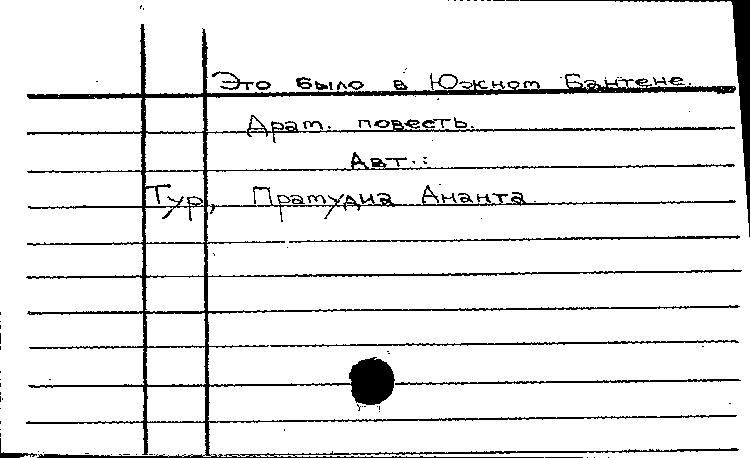 Это было в Южном Бантене.
Драм. повесть.
Авт.:
Тур, Прамудиа Ананта